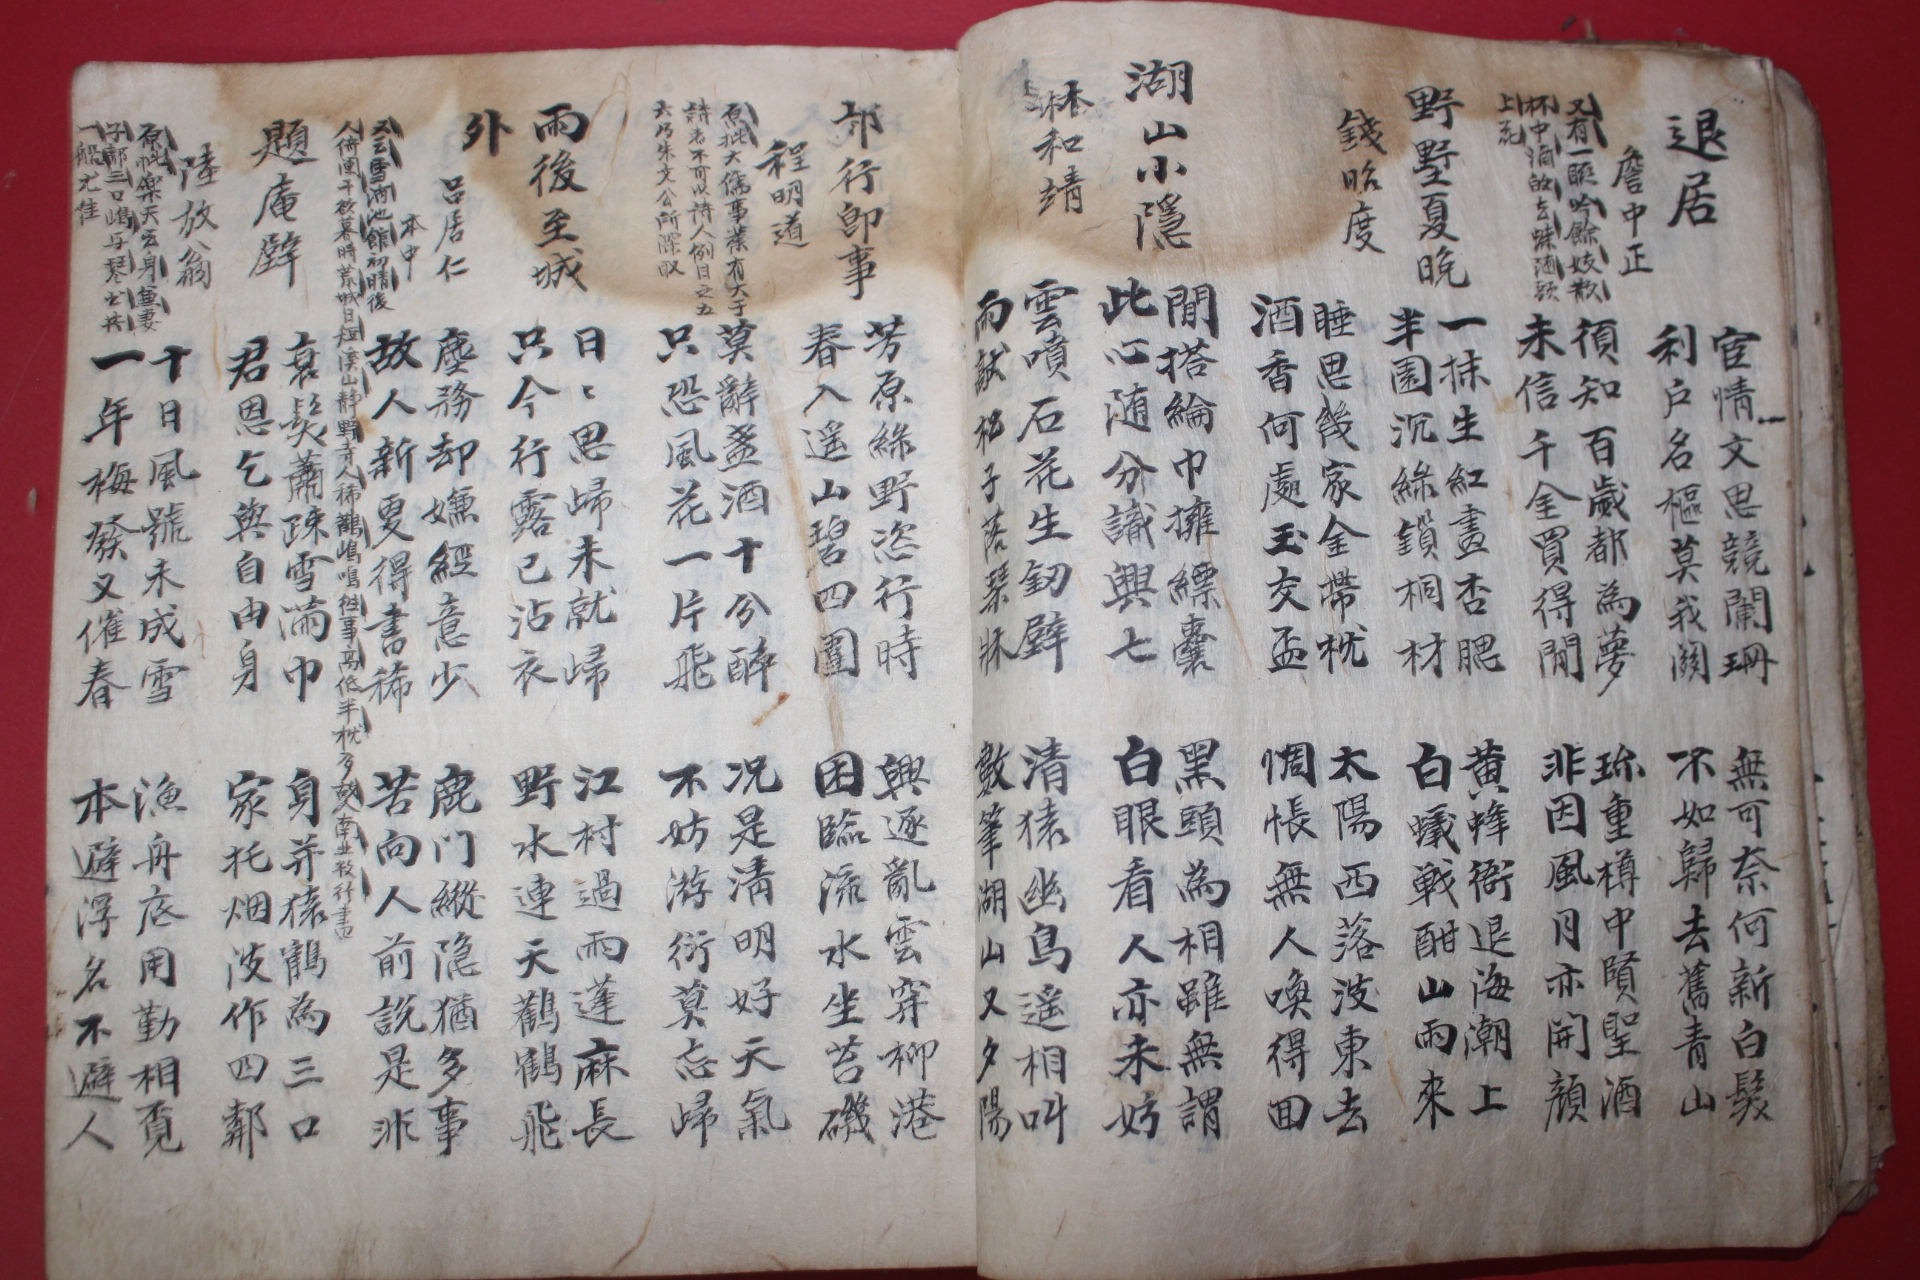 退居
詹中正
又有一聯吟餘妓散
杯中酒的去蛛
上花
宦情文思競闌珊 無可奈何新白髮
利戶名樞莫我關 不如歸去舊青山
須知百歲都為夢 珎重樽中賢聖酒
未信千金買得閒 非因風月亦開顏
野墅夏晚
錢昭度
一抹生紅畫杏腮 黃蜂衙退海潮上
半園沉綠鎖桐材 白蟻戰酣山雨來
睡思幾家金帶枕 太陽西落波東去
酒香何處玉交盃 惆悵無人喚得回
湖山小隱
林和靖
閒搭綸巾擁縹囊 黑頭為相雖無謂
此心随分識興亡 白眼看人亦未妨
雲噴石花生釰壁 清猿幽鳥遥相叫
雨敲松子落琴牀 數筆湖山又夕陽
郊行卽事
程明道
原批大儒事業有大于
詩者不可以詩人例目之五
六乃朱文公所深取
芳原綠野恣行時 興逐亂雲穿柳港
春入遥山碧四圍 困臨流水坐苔磯
莫辭盞酒十分醉 况是清明好天氣
只恐風花一片飛 不妨游衍莫忘歸
雨後至城
外
呂居仁
本中
日〻思歸未就歸 江村過雨蓬麻長
只今行露已沾衣 野水連天鸛鶴飛
塵務却嫌經意少 鹿門縱隐猶多事
故人新夏得書稀 苦向人前說是非
又云雪消池館初晴後
人倚闌干欲暮時 荒城日短溪山静 野寺人稀鸛鶴鳴 往事高低半枕夢 故人南北数行書
題庵壁
陸放翁
原批樂天云身兼妻
子都三口鶴与琴书共
一船尤佳
衰髮蕭疎雪滿巾 身并猿鶴為三口
君恩乞與自由身 家托烟波作四鄰
十日風號未成雪 漁舟底用勤相覔
一年梅發又催春 本避浮名不避人